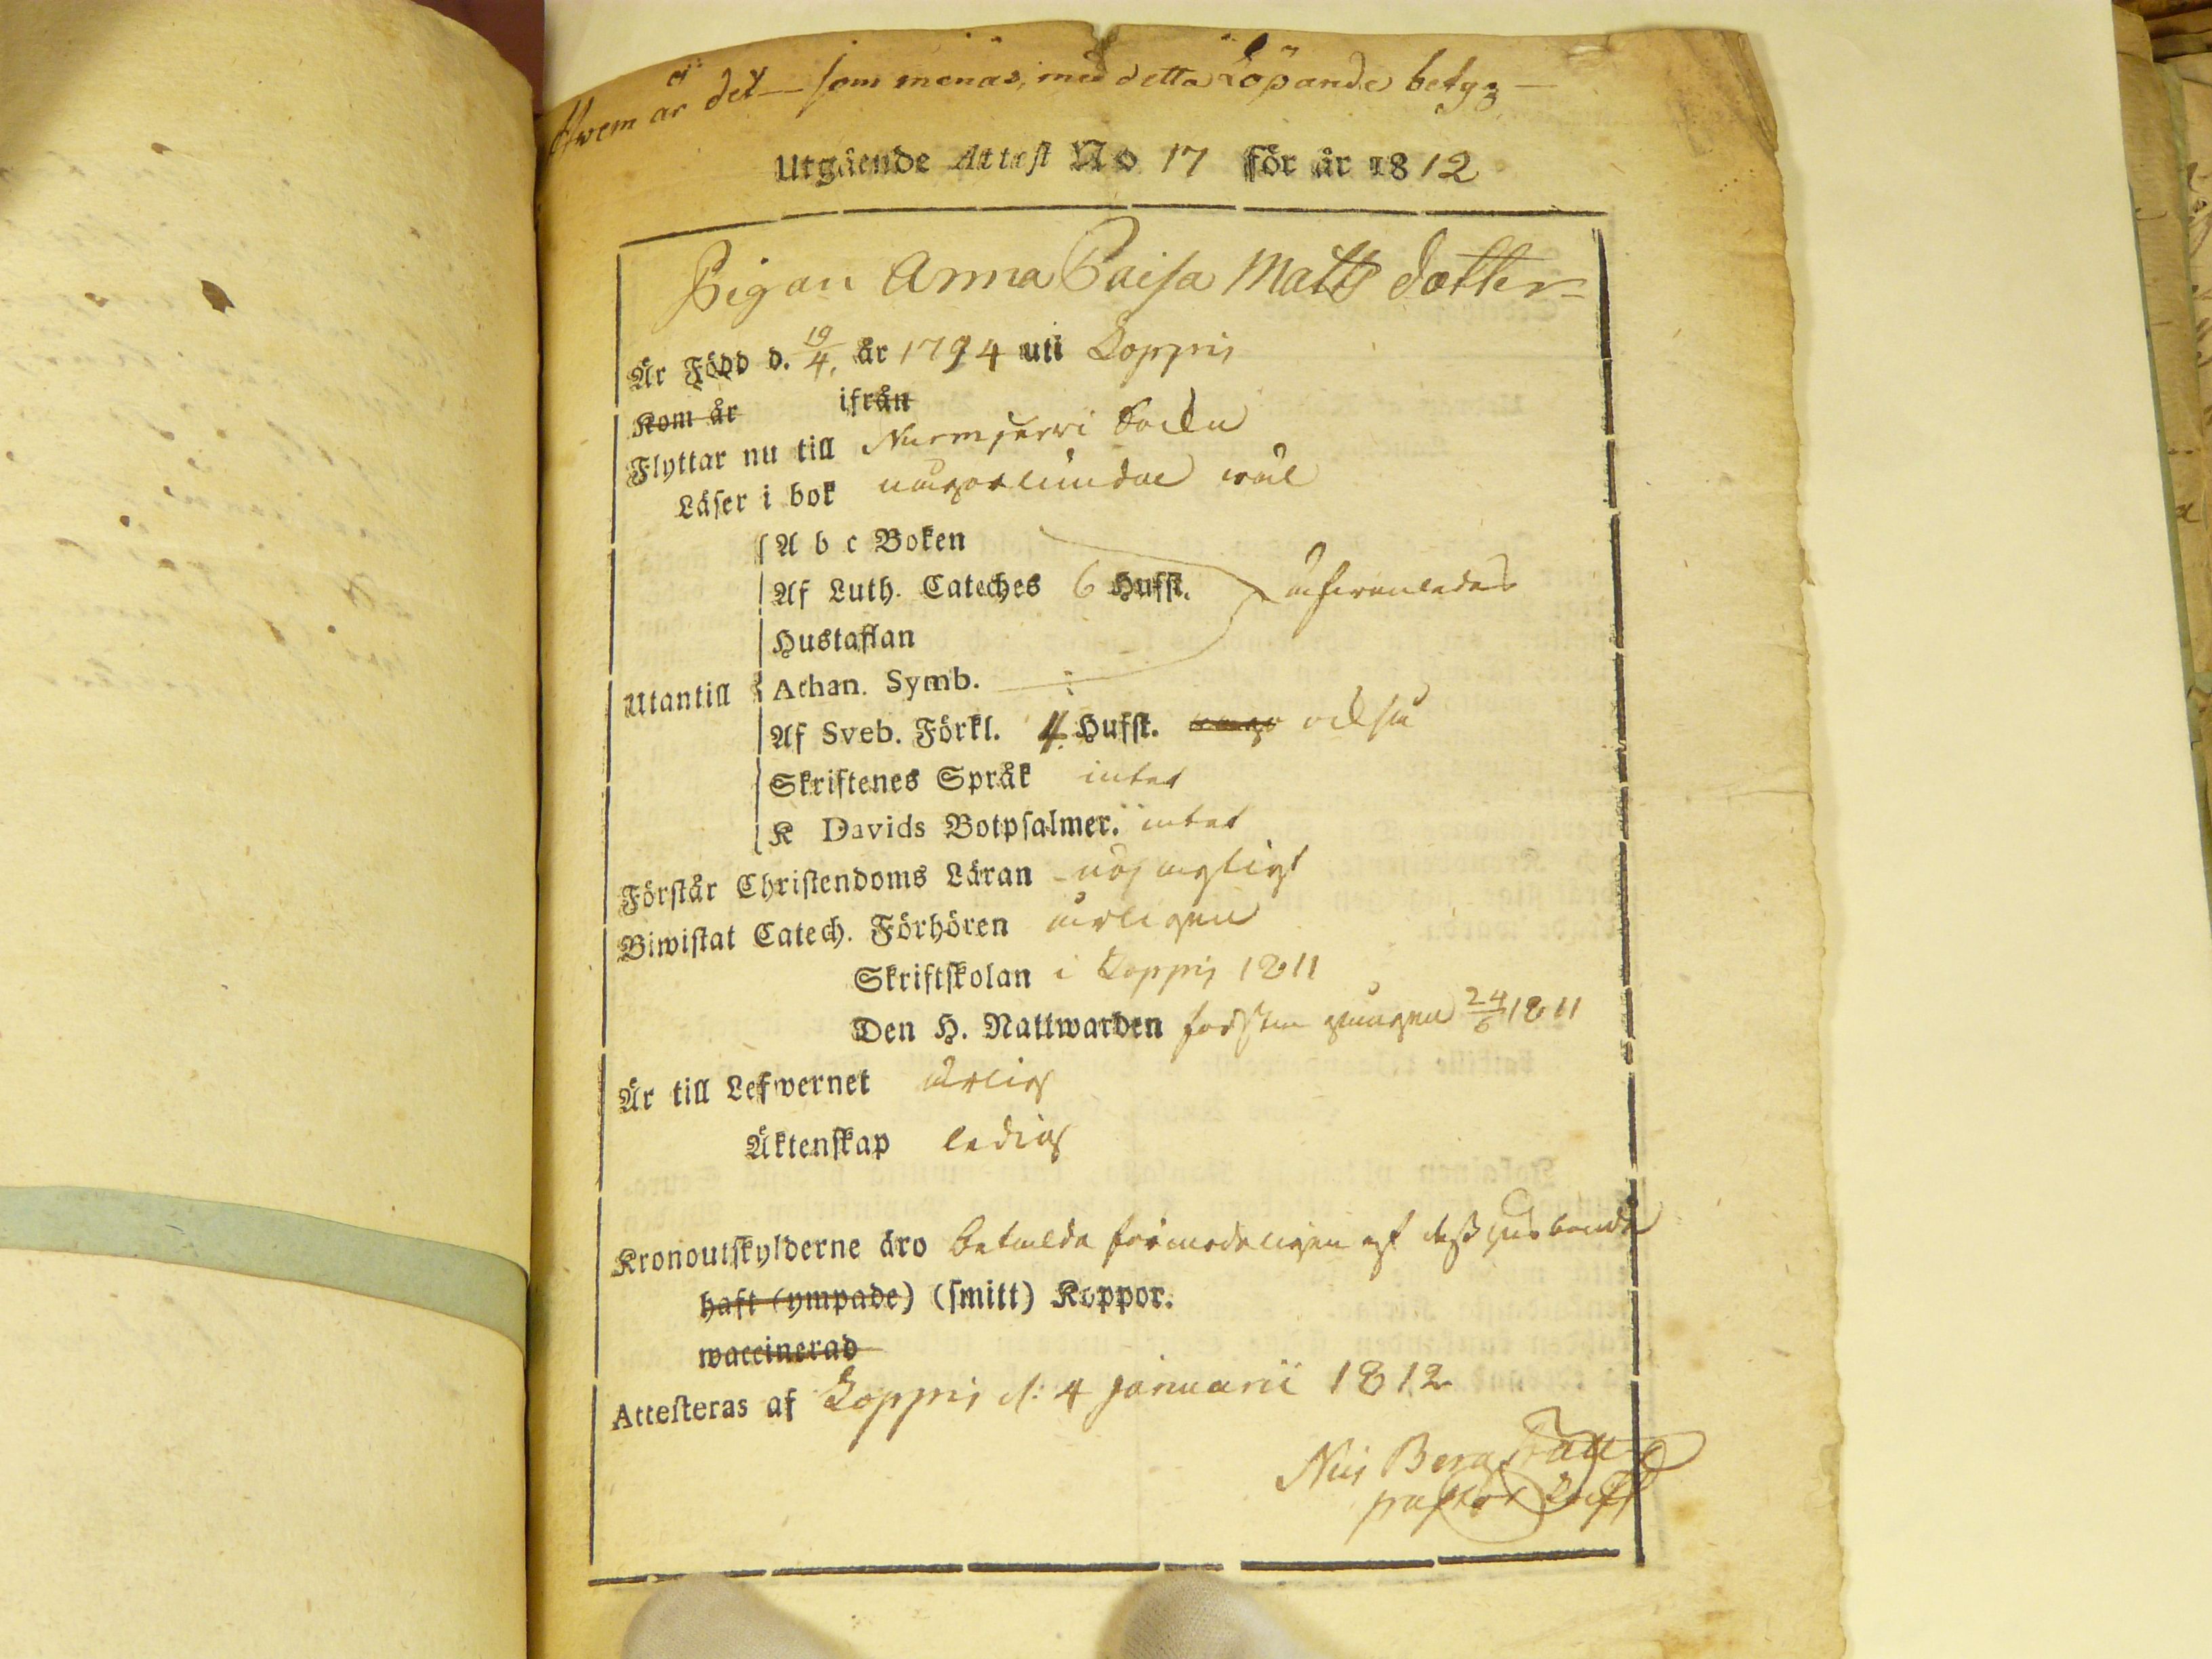 Hwem är det som menas, med detta Löpande betyg
Utgående Attest No 17 för år 1812
Pigan Anna Caisa Matts dotter
Är Född d. 19/4, år 1794 uti Loppis
Kom år ifrån
Flyttar nu till Nurmjerwi Sockn
Läser i bok någorlunda wäl
A b c Boken
Af Luth. Cateches 6 Hufst. åfwanledes
Hustaflan
Utantill Athan. Symb.
Af Sveb. Förkl. 4 Hufst. också
Skriftenes Språk intet
K Davids Botpsalmer. intet
Förstår Christendoms Läran nöjagtigt
Biwistat Catech. Förhören årligen
Skriftskolan i Loppis 1811
Den H. Nattwarden första gången 24/6 1811
Är till Lefwernet ärlig
Äktenskap ledig
Kronoutskylderne äro betalda förmodeligen af dess husbonde
haft (ympade) (smitt) Koppor.
waccinerad
Attesteras af Loppis d: 4 Januarii 1812
Nils Bergställ
pastor